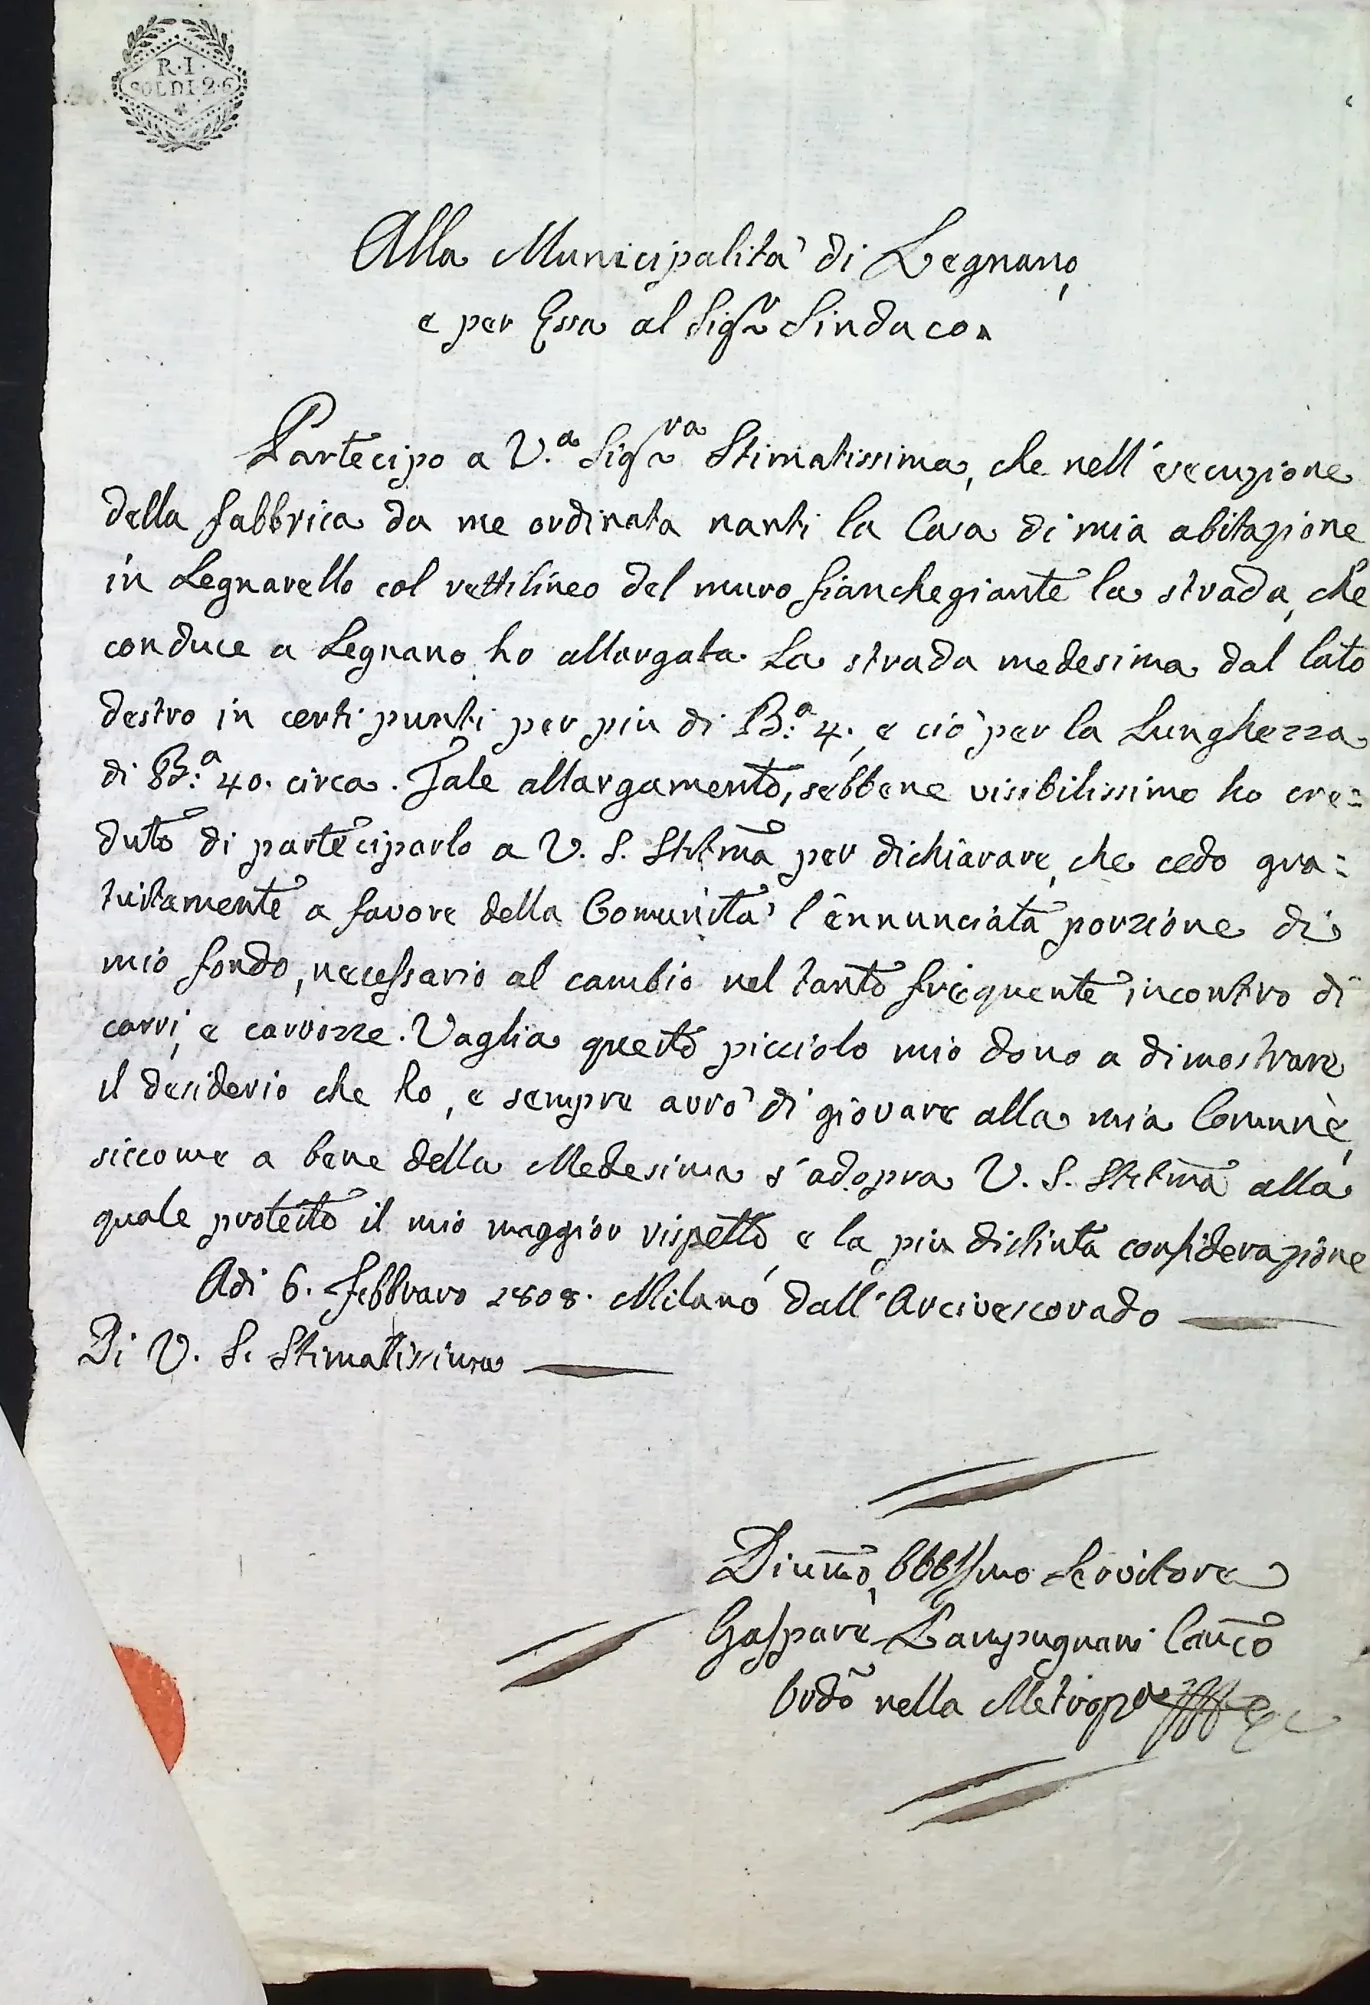 R. I.
SOLDI 2.6
Alla Municipalità di Legnano,
e per Essa al Sigr Sindaco.
Partecipo a V.a Sigra Stimatissima, che nell'esecuzione
della fabbrica da me ordinata nanti la Casa di mia abitazione
in Legnarello col rettilineo del muro fianchegiante la strada, che
conduce a Legnano, ho allargata la strada medesima dal lato
destro in certi punti per più di B:a 4., e ciò per la lunghezza
di B:a 40. circa. Tale allargamento, sebbene visibilissimo ho cre=
duto di parteciparlo a V. S. Stitma per dichiarare, che cedo gra=
tuitamente a favore della Comunità l'ennunciata porzione di
mio fondo, necessario al cambio nel tanto frequente incontro di
carri, e carrozze. Vaglia questo picciolo mio dono a dimostrare
il desiderio che ho, e sempre avrò di giovare alla mia Comune,
siccome a bene della Medesima s'adopra V. S. Stitma alla
quale protesto il mio maggior rispetto, e la più distinta considerazione
Adi 6. Febbraro 1808. Milano dall'Arcivescovado
Di V. S. Stimatissima
Divmo, Obblssmo Servitore
Gaspare Lampugnani Canco
Ordo nella Metropna